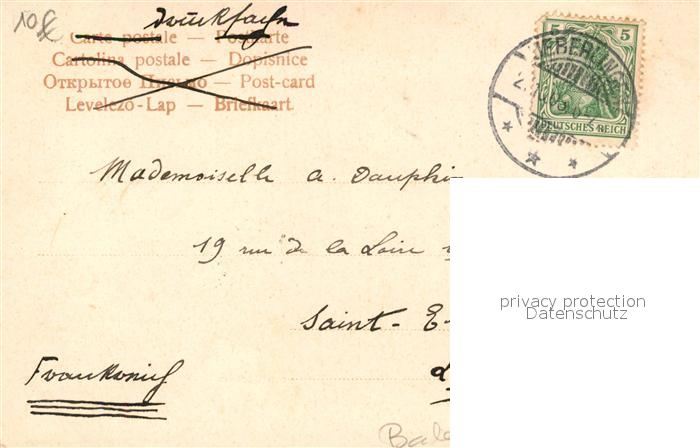 10.-
Drucksache
Carte postale — Postkarte
Cartolina postale — Dopisnice
Открытое Письмо — Post-card
Levelezö-Lap — Briefkaart
5 5
DEUTSCHES REICH
Mademoiselle a. Dauphin
19 rue de la Loire
Saint-E
privacy protection
Datenschutz